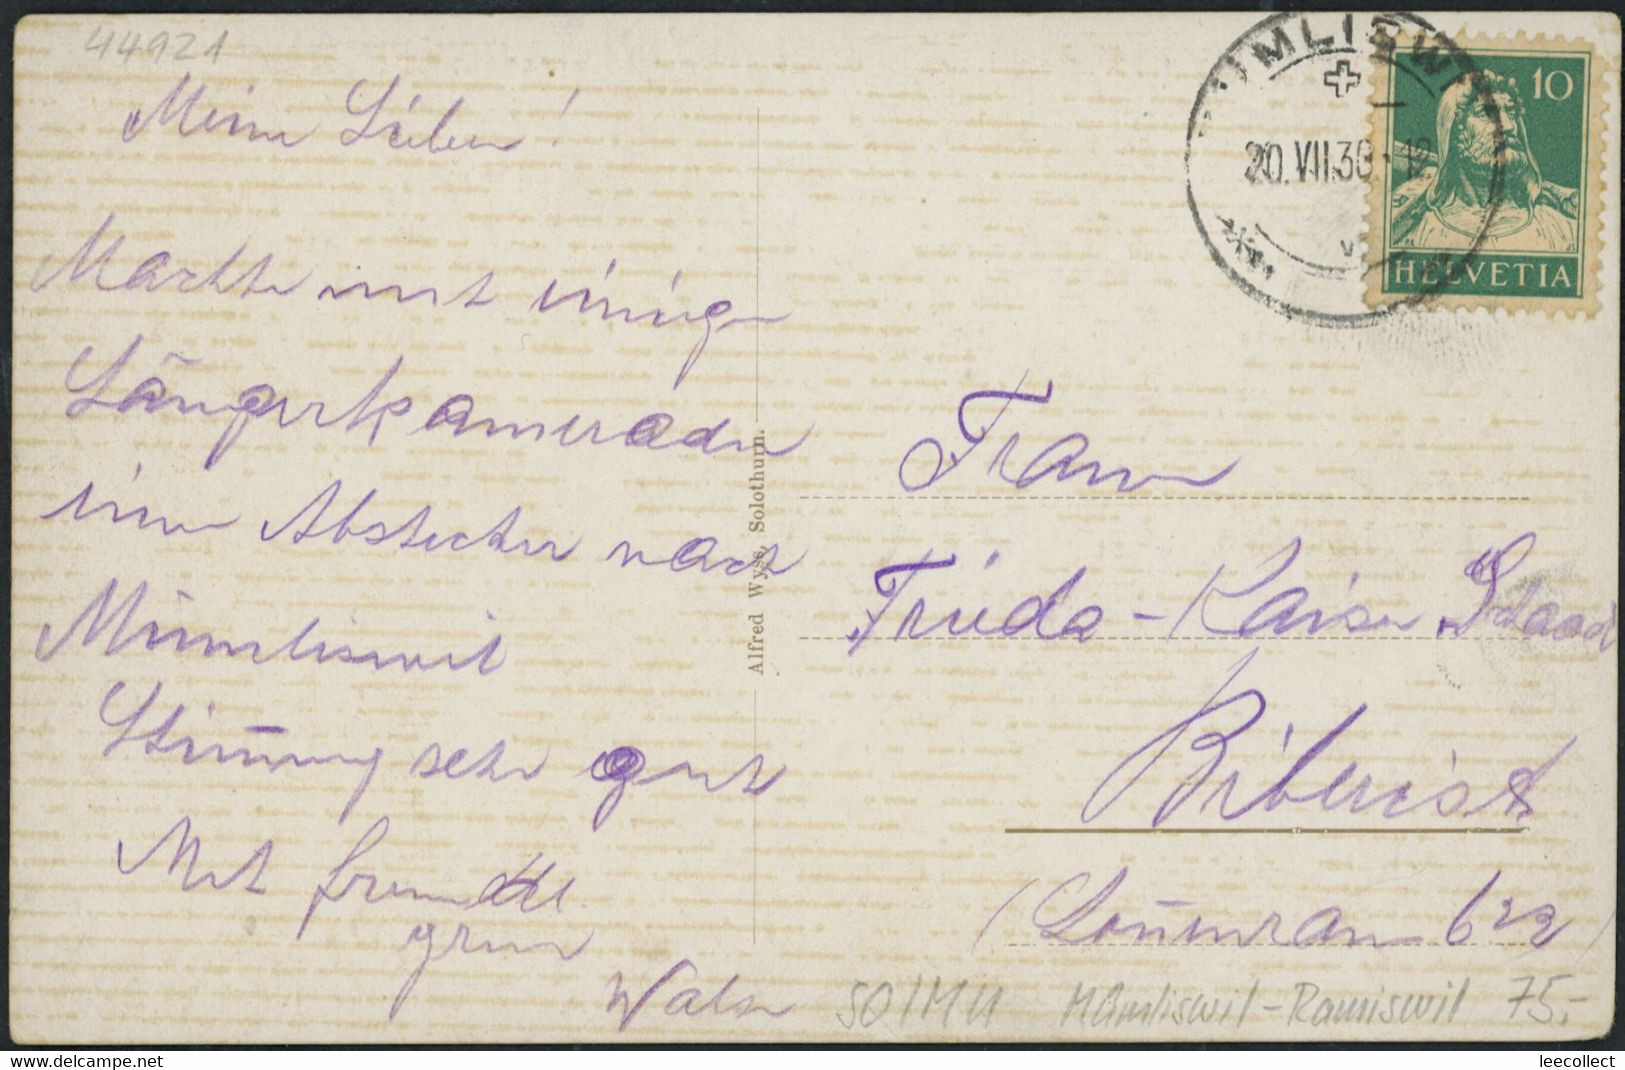 44921
Meine Lieben!
Machte mit einigen
Sängerkameraden
einen Abstecher nach
Mümliswil
Stimmung sehr gut
Mit freundl.
grus
Walter
Alfred Wyss, Solothurn.
MÜMLISWIL
20.VII.30.-12
10
HELVETIA
Frau
Frieda-Kaiser
Biberist
SO/MU Mümliswil-Ramiswil 75.-
leecollect